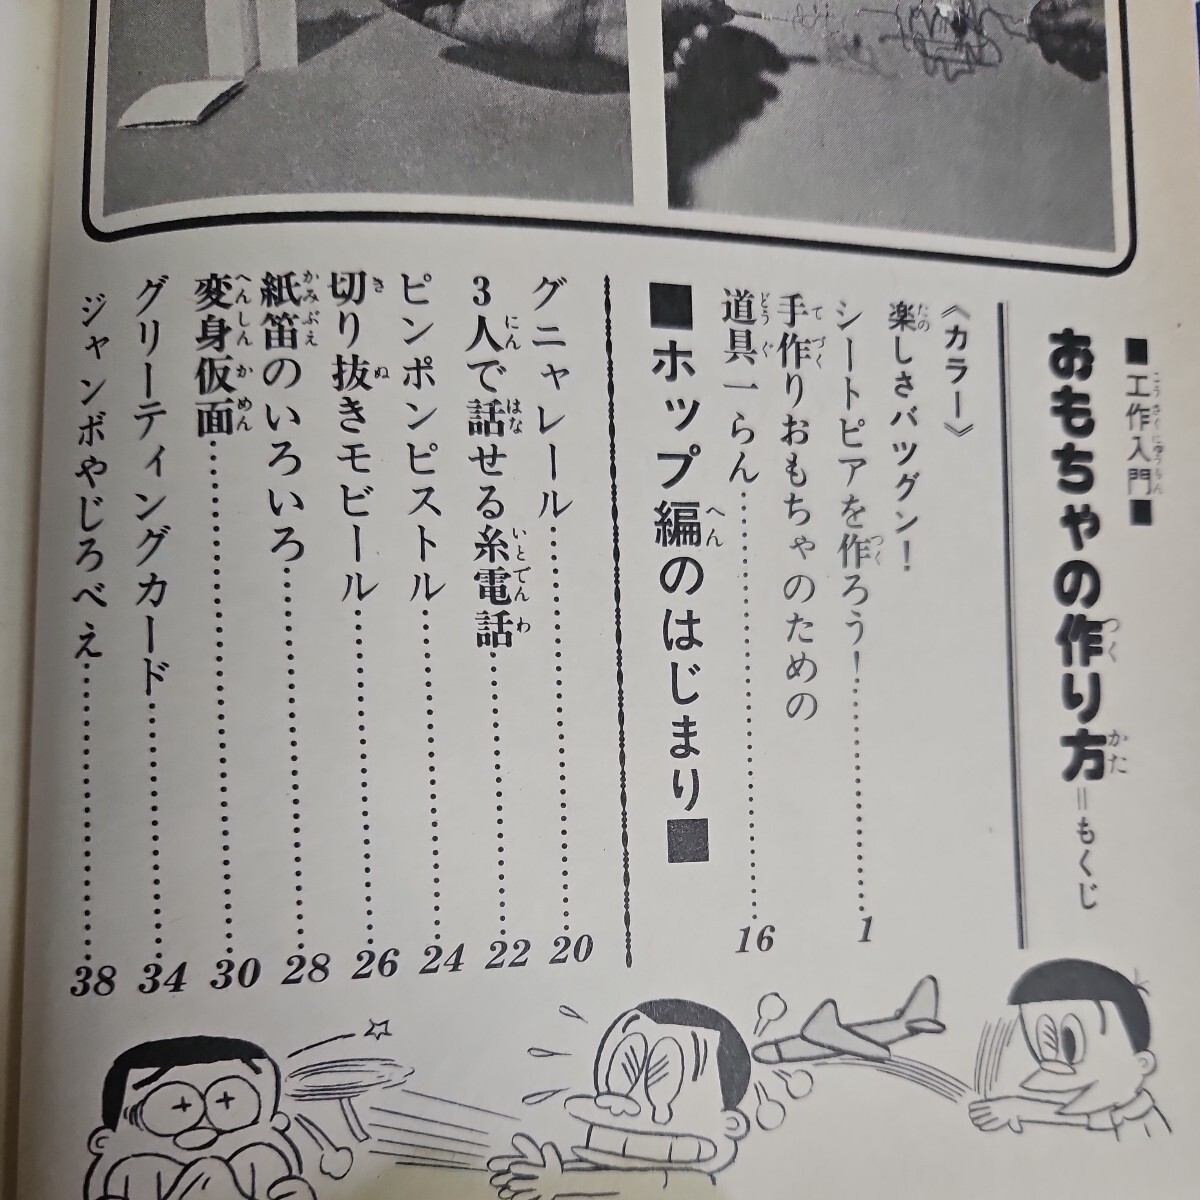 ■工作入門■
おもちゃの作り方=もくじ
《カラー》
楽しさバツグン!
シートピアを作ろう!……1
手作りおもちゃのための
道具一らん……16
■ホップ編のはじまり■
グニャレール……20
3人で話せる糸電話……22
ピンポンピストル……24
切り抜きモビール……26
紙笛のいろいろ……28
変身仮面……30
グリーティングカード……34
ジャンボやじろべえ……38